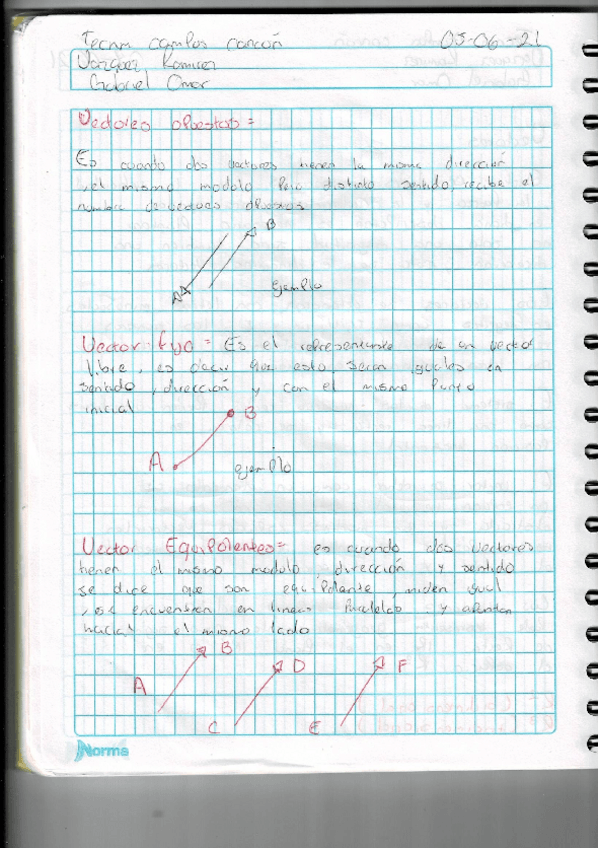 Tecnm campus cancún 05-06-21
Vazquez Ramirez
Gabriel Omar
Vectores opuestos =
Es cuando dos vectores tienen la misma dirección
, el mismo modulo Pero distinto sentido, recibe el
nombre de vectores opuestos
B
A
ejemplo
Vector fijo = Es el representante de un vector
libre, es decir que esto, seran iguales en
sentido, dirección y con el mismo Punto
inicial
B
A
ejemplo
Vector Equipolentes = es cuando dos vectores
tienen el mismo modulo dirección y sentido
se dice que son equipolente, miden igual
, se encuentran en lineas Paralelas y apuntan
hacia el mismo lado
B
A D F
C E
Norma